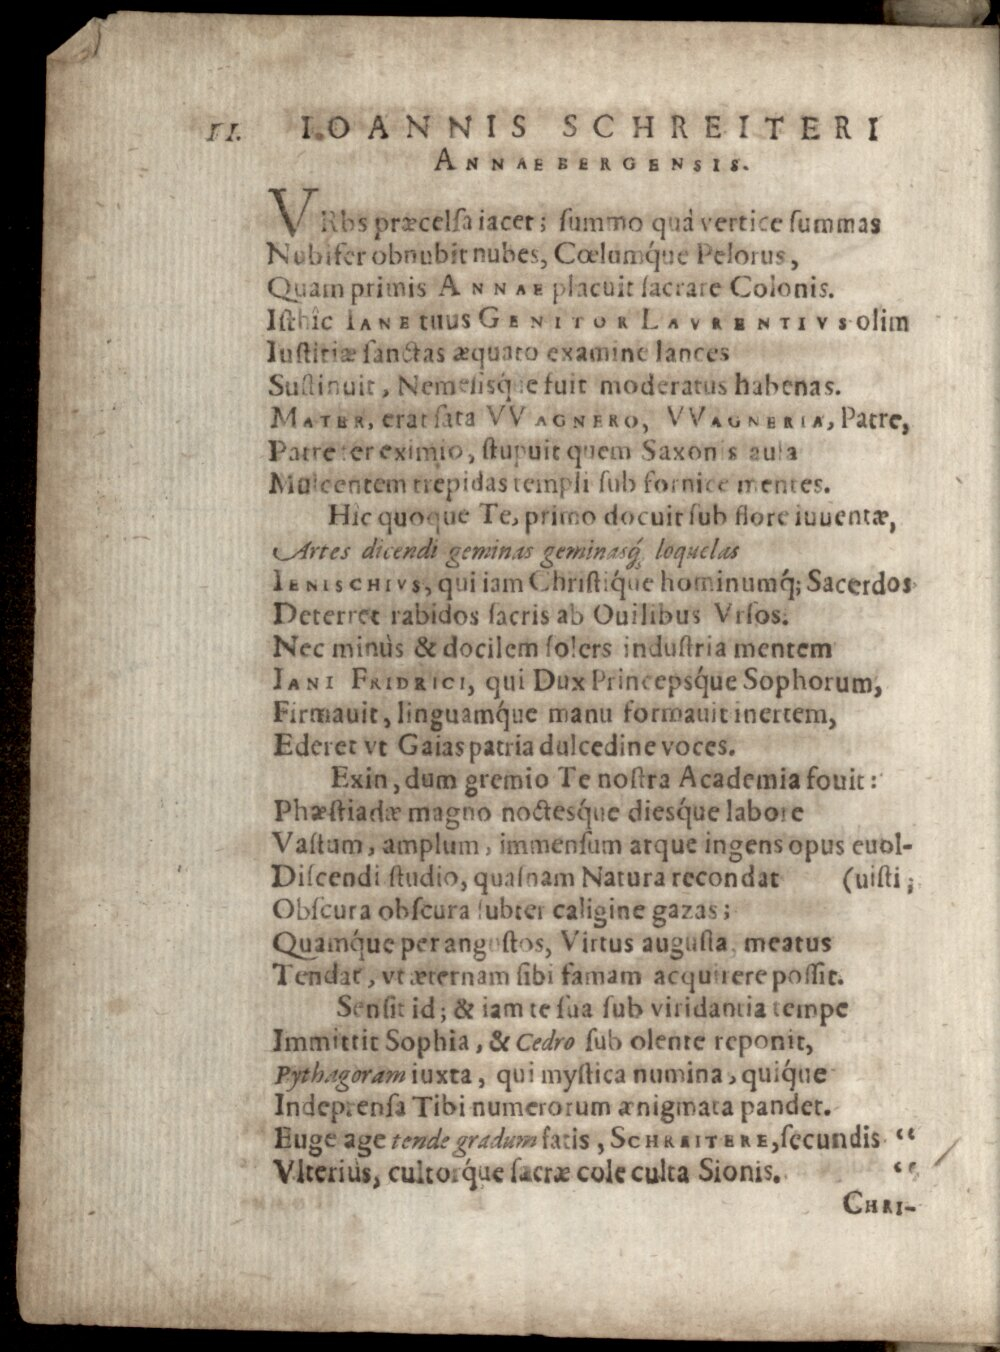 II. IOANNIS SCHREITERI
ANNAEBERGENSIS.
VRbs præcelsa iacet; summo quà vertice summas
Nubifer obnubit nubes, Cœlumq́ue Pelorus,
Quam primis ANNAE placuit sacrare Colonis.
Isthîc IANE tuus GENITOR LAVRENTIVS olim
Iustitiæ sanctas æquato examine lances
Sustinuit, Nemesisq́ue fuit moderatus habenas.
MATER, erat sata VVAGNERO, VVAGNERIA, Patre,
Patre ter eximio, stupuit quem Saxonis aula
Mulcentem trepidas templi sub fornice mentes.
Hic quoque Te, primo docuit sub flore iuuentæ,
Artes dicendi geminas geminasq́; loquelas
IENISCHIVS, qui iam Christiq́ue hominumq́; Sacerdos
Deterret rabidos sacris ab Ouilibus Vrsos.
Nec minùs & docilem solers industria mentem
IANI FRIDRICI, qui Dux Princepsq́ue Sophorum,
Firmauit, linguamq́ue manu formauit inertem,
Ederet vt Gaias patria dulcedine voces.
Exin, dum gremio Te nostra Academia fouit:
Phæstiadæ magno noctesq́ue diesq́ue labore
Vastum, amplum, immensum atque ingens opus euol-
Discendi studio, quasnam Natura recondat (uisti;
Obscura obscura subter caligine gazas;
Quamq́ue per angustos, Virtus augusta, meatus
Tendat, vt æternam sibi famam acquirere possit.
Sensit id; & iam te sua sub viridantia tempe
Immittit Sophia, & Cedro sub olente reponit,
Pythagoram iuxta, qui mystica numina, quiq́ue
Indeprensa Tibi numerorum ænigmata pandet.
Euge age tende gradum fatis, SCHREITERE, secundis “
Vlteriùs, cultorq́ue sacræ cole culta Sionis. “
CHRI-